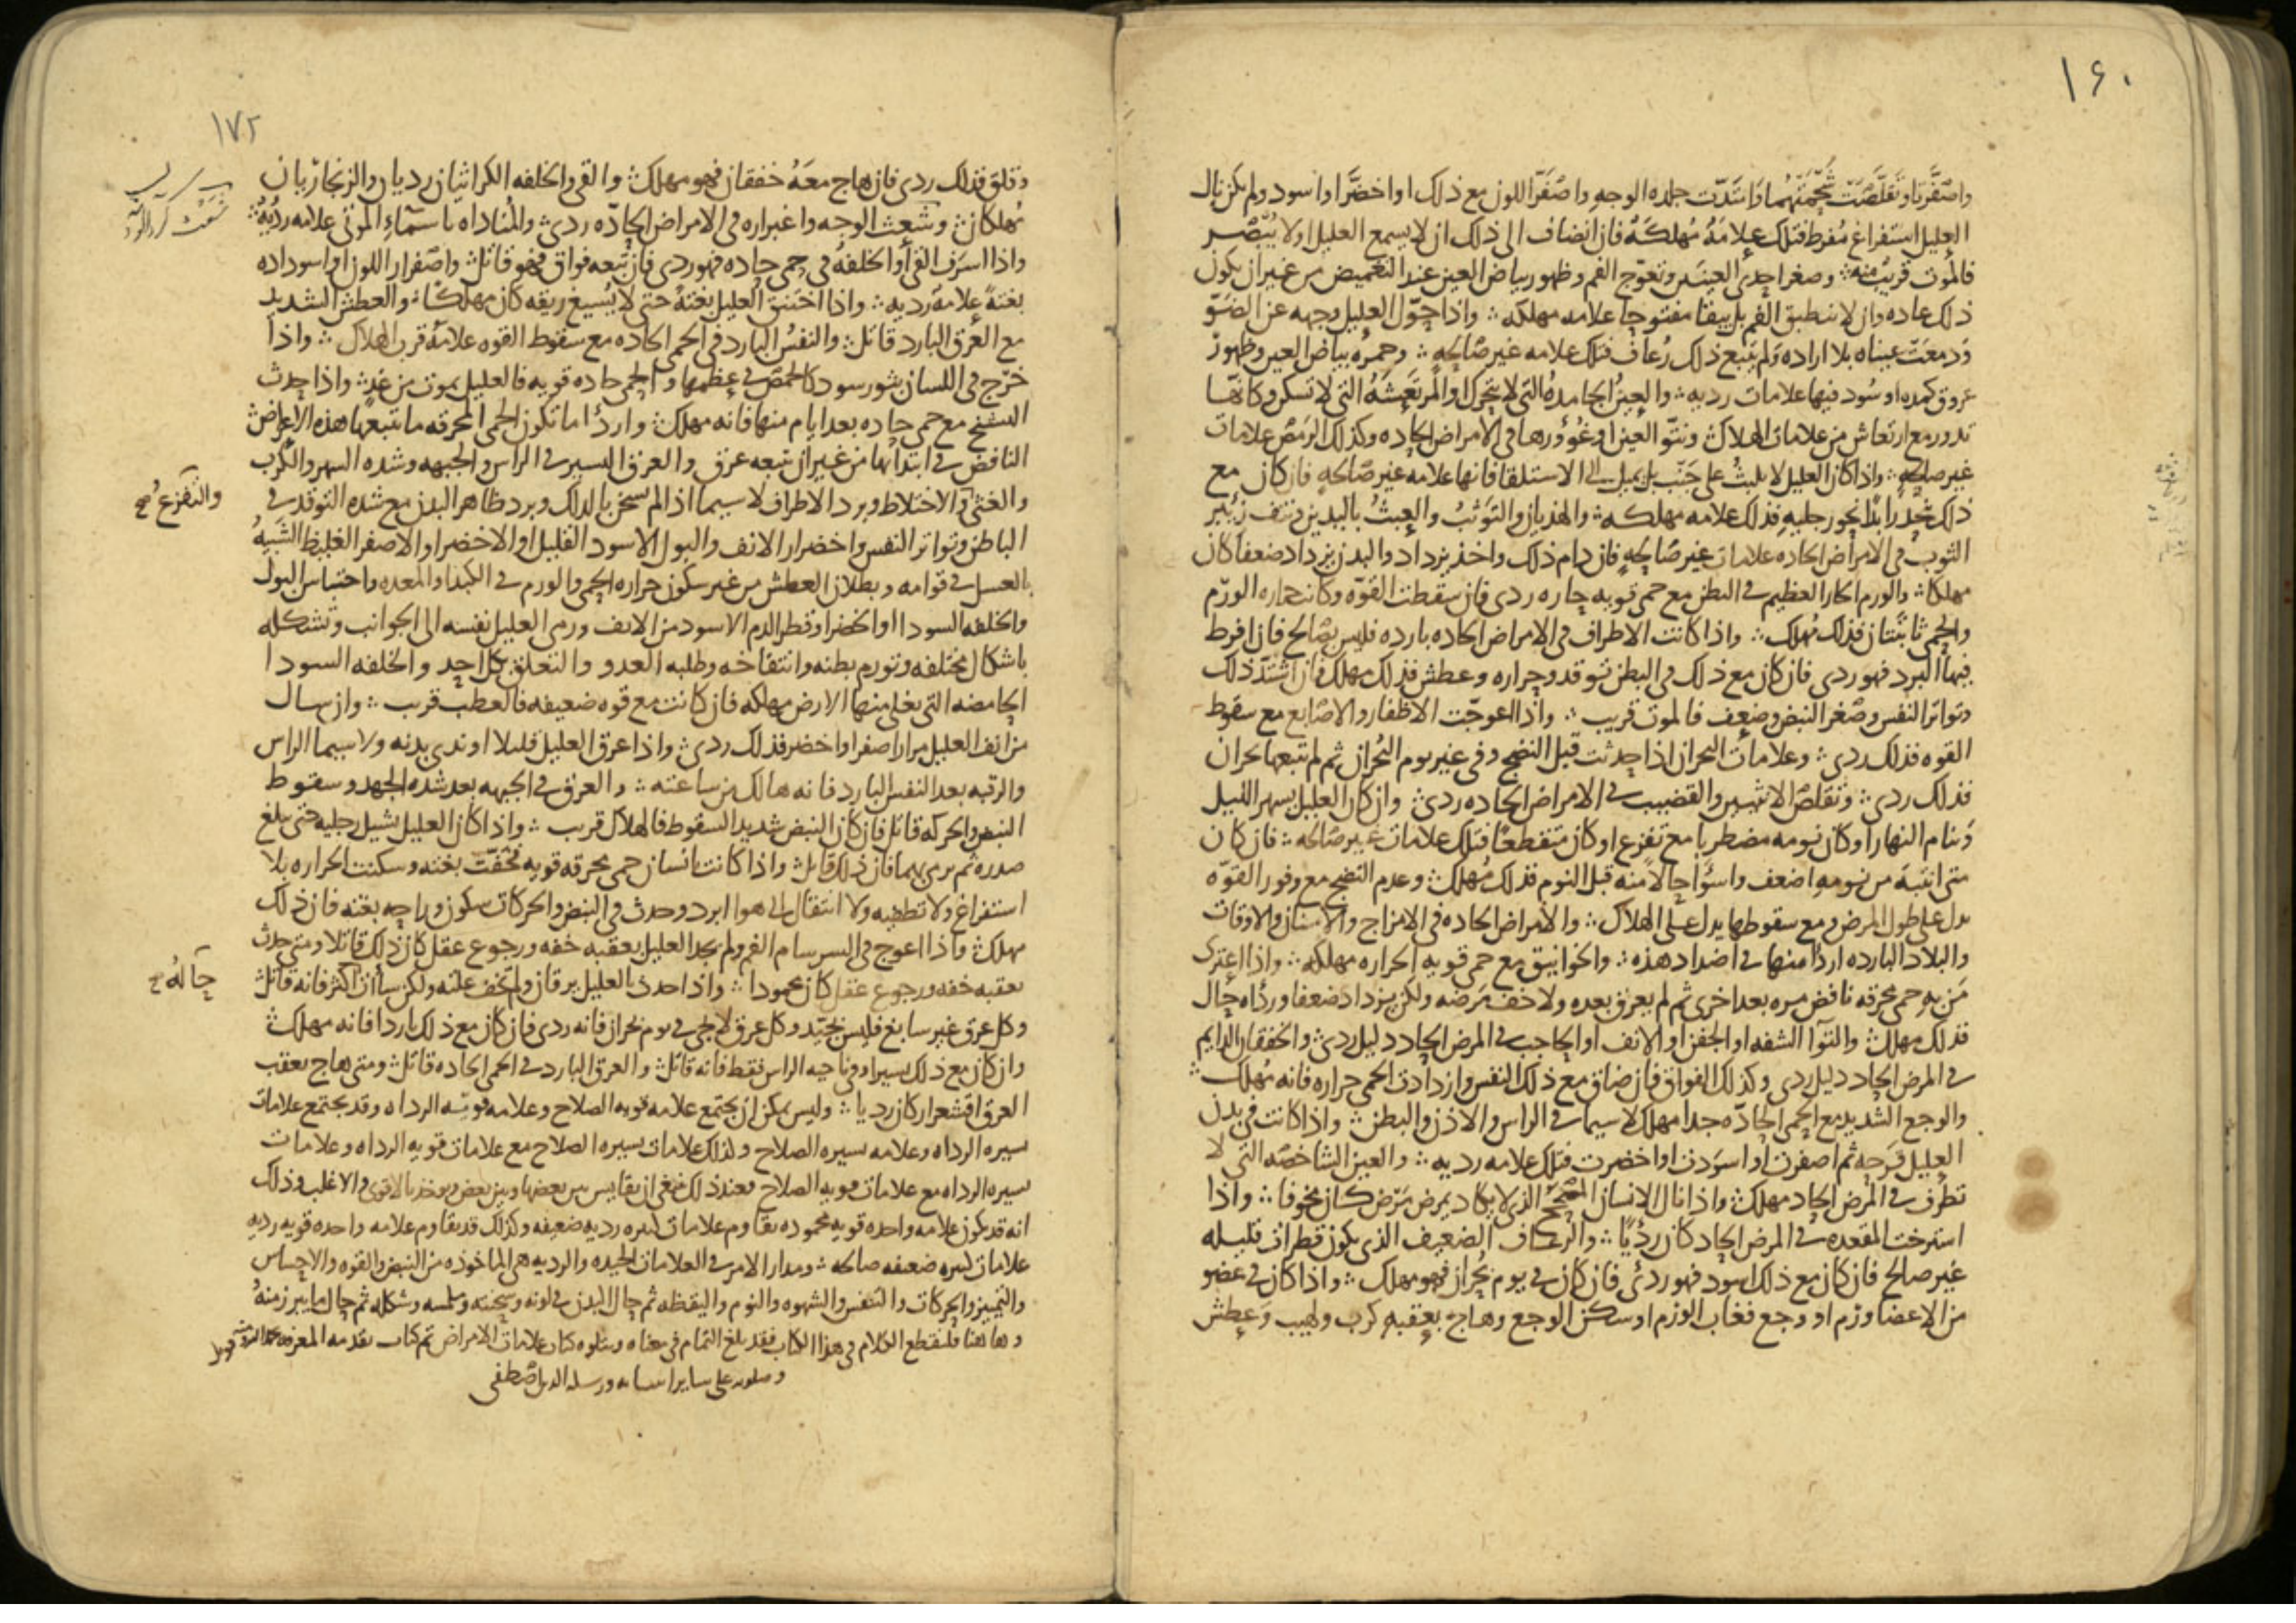 ١۶٠
واصفرتا وتقلصت شحمتهما واشتدت جلده الوجه واصفر اللون مع ذلك او اخضر او اسود ولم يكن نال
العليل استفراغ مفرط فتلك علامة مهلكة فان انضاف الى ذلك ان لا يسمع العليل او لا يبصر
فالموت قريب منه وصغر احدى العينين وتعوج الفم وظهور بياض العين عند التغميض من غير ان يكون
ذلك عاده وان لا ينطبق الفم بل يبقا مفتوحا علامه مهلكه واذا حول العليل وجهه عن الضو
ودمعت عيناه بلا اراده ولم يتبع ذلك رعاف فتلك علامه غير صالحه وحمره بياض العين وظهور
عروق كمده او سود فيها علامات رديه والعين الجامده التي لا تتحرك والمرتعشه التي لا تسكن وكانها
تدور مع ارتعاش من علامات الهلاك ونتو العين او غوورها في الامراض الحاده وكذلك الرمص علامات
غير صالحه واذا كان العليل لا يلبث على جنب بل يميل الى الاستلقا فانها علامه غير صالحه فان كان مع
ذلك ينحدر ابدا نحو رجليه فذلك علامه مهلكه والهذيان والتوثب والعبث باليدين ونتف زئبر
الثوب في الامراض الحاده علامات غير صالحه فان دام ذلك واخذ يزداد والبدن يزداد ضعفا كان
مهلكا والورم الحار العظيم في البطن مع حمى قويه حاره ردي فان سقطت القوه وكانت حراره الورم
والحمى ثابتتان فذلك مهلك واذا كانت الاطراف في الامراض الحاده بارده فليس بصالح فان افرط
فيها البرد فهو ردي فان كان مع ذلك في البطن توقد وحراره وعطش فذلك مهلك فان اشتد ذلك
وتواتر النفس وصغر النبض وضعف فالموت قريب واذا اعوجت الاظفار والاصابع مع سقوط
القوه فذلك ردي وعلامات البحران اذا حدثت قبل النضج وفي غير يوم البحران ثم لم تتبعها بحران
فذلك ردي وتقلص الانثيين والقضيب في الامراض الحاده ردي وان كان العليل يسهر الليل
وينام النهار او كان نومه مضطربا مع تفزع او كان متقطعا فتلك علامات غير صالحه فان كان
متى انتبه من نومه اضعف واسوأ حالا منه قبل النوم فذلك مهلك وعدم النضج مع وفور القوه
يدل على طول المرض ومع سقوطها يدل على الهلاك والامراض الحاده في الامزاج والاسنان والاوقات
والبلاد البارده اردا منها في اضداد هذه والخوانيق مع حمى قويه الحراره مهلكه واذا اعترى
من به حمى محرقه نافض مره بعد اخرى ثم لم يعرق بعده ولا خف مرضه ولكن يزداد ضعفا ورداه حال
فذلك مهلك والتوا الشفه او الجفن او الانف او الحاجب في المرض الحاد دليل ردي والخفقان الدايم
في المرض الحاد دليل ردي وكذلك الفواق فان ضاق مع ذلك النفس وازدادت الحمى حراره فانه مهلك
والوجع الشديد مع الحمى الحاده جدا مهلك لا سيما في الراس والاذن والبطن واذا كانت في بدن
العليل قرحه ثم اصفرت او اسودت او اخضرت فتلك علامه رديه والعين الشاخصه التي لا
تطرف في المرض الحاد مهلك واذا نال الانسان الصحيح الذي لا يكاد يمرض مرض كان مخوفا واذا
استرخت المقعده في المرض الحاد كان رديا والرعاف الضعيف الذي يكون قطرات قليله
غير صالح فان كان مع ذلك اسود فهو ردئ فان كان في يوم بحران فهو مهلك واذا كان في عضو
من الاعضا ورم او وجع فغاب الورم او سكن الوجع وهاج بعقبه كرب ولهيب وعطش
١٧٢
وقلق فذلك ردي فان هاج معه خفقان فهو مهلك والقي والخلفه الكراثيان رديان والزنجاريان
مهلكان وشعث الوجه واغبراره في الامراض الحاده ردي والمناداه باسماء الموتى علامه رديه
واذا اسرف القي او الخلفه في حمى حاده فهو ردي فان تبعه فواق فهو قاتل واصفرار اللون او اسوداده
بغتة علامة رديه واذا اختنق العليل بغتة حتى لا يسيغ ريقه كان مهلكا والعطش الشديد
مع العرق البارد قاتل والنفس البارد في الحمى الحاده مع سقوط القوه علامة قرب الهلاك واذا
خرج في اللسان بثور سود كالحمص في عظمها والحمى حاده قويه فالعليل يموت من غد واذا حدث
التشنج مع حمى حاده بعد ايام منها فانه مهلك واردأ ما تكون الحمى المحرقه ما تتبعها هذه الاعراض
النافض في ابتدائها من غير ان يتبعه عرق والعرق اليسير في الراس والجبهه وشده السهر والكرب
والغثي والاختلاط وبرد الاطراف لا سيما اذا لم تسخن بالدلك وبرد ظاهر البدن مع شده التوقد في
والتفزع صح
الباطن وتواتر النفس واخضرار الانف والبول الاسود القليل او الاخضر او الاصفر الغليظ الشبيه
بالعسل في قوامه وبطلان العطش من غير سكون حراره الحمى والورم في الكبد او المعده واحتباس البول
والخلفه السودا او الخضرا وقطر الدم الاسود من الانف ورمي العليل نفسه الى الجوانب وتشكله
باشكال مختلفه وتورم بطنه وانتفاخه وطلبه العدو والتعلق بكل احد والخلفه السودا
الحامضه التي يغلي منها الارض مهلكه فان كانت مع قوه ضعيفه فالعطب قريب وان سال
من انف العليل مرار اصفر او اخضر فذلك ردي واذا عرق العليل قليلا او ندي بدنه ولا سيما الراس
والرقبه بعد النفس البارد فانه هالك من ساعته والعرق في الجبهه بعد شده الجهد وسقوط
النبض والحركه قاتل فان كان النبض شديد السقوط فالهلاك قريب واذا كان العليل يشيل رجليه حتى يبلغ
صدره ثم يرمي بهما فان ذلك قاتل واذا كانت بانسان حمى محرقه قويه فخفت بغته وسكنت الحراره بلا
استفراغ ولا تطفيه ولا انتقال الى هوا ابرد وحدث في النبض والحركات سكون وراحه بغته فان ذلك
مهلك واذا اعوج في السرسام الفم ولم يجد العليل بعقبه خفه ورجوع عقل كان ذلك قاتلا ومتى حدث
بعقبه خفه ورجوع عقل كان محمودا واذا حدث بالعليل يرقان ولم تخف علته ولكن ساءت اكثر فانه قاتل
حاله صح
وكل عرق غير سابغ فليس بجيد وكل عرق لا يجي في يوم بحران فانه ردي فان كان مع ذلك باردا فانه مهلك
وان كان مع ذلك يسيرا وفي ناحيه الراس فقط فانه قاتل والعرق البارد في الحمى الحاده قاتل ومتى هاج بعقب
العرق اقشعرار كان رديا وليس يمكن ان يجتمع علامه قويه الصلاح وعلامه قويه الرداه وقد يجتمع علامات
يسيره الرداه وعلامه يسيره الصلاح وكذلك علامات يسيره الصلاح مع علامات قويه الرداه وعلامات
يسيره الرداه مع علامات قويه الصلاح فعند ذلك ينبغي ان يقايس بين بعضها وبين بعض ويوخذ بالاقوى والاغلب وذلك
انه قد يكون علامه واحده قويه محموده يقاوم علامات كثيره رديه ضعيفه وكذلك قد يقاوم علامه واحده قويه رديه
علامات كثيره ضعيفه صالحه ومدار الامر في العلامات الجيده والرديه هي الماخوذه من النبض والقوه والاحساس
والتمييز والحركات والتنفس والشهوه والنوم واليقظه ثم حال البدن في لونه وسحنته وملمسه وشكله ثم حال ما يبرز منه
وهاهنا فلنقطع الكلام في هذا الكتاب فقد بلغ التمام في معناه ويتلوه كتاب علامات الامراض تم كتاب تقدمه المعرفه
وصلوته على ساير انبيائه ورسله الذين اصطفى